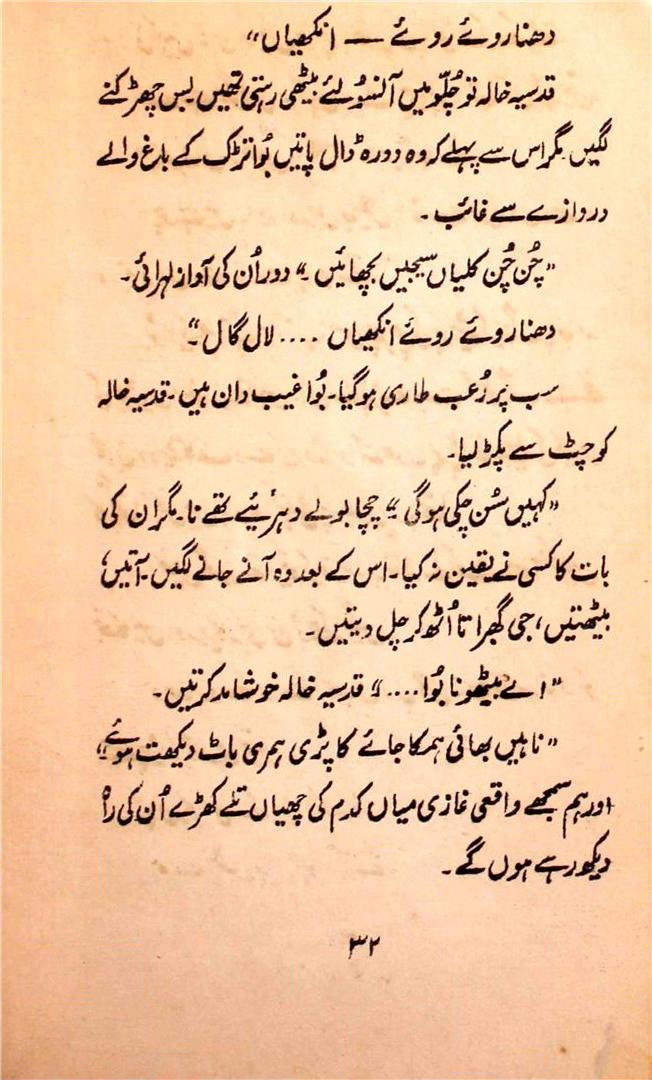 دھنا روئے روئے — انکھیاں"
قدسیہ خالہ تو چُلّو میں آنسو لئے بیٹھی رہتی تھیں بس چھڑکنے
لگیں۔ مگر اس سے پہلے کہ وہ دورہ ڈال پاتیں بُوا تڑک کے باغ والے
دروازے سے غائب۔
"چُن چُن کلیاں سیجیں بچھائیں۔" دور اُن کی آواز لہرائی۔
دھنا روئے روئے انکھیاں .... لال گال۔"
سب پر رُعب طاری ہوگیا۔ بُوا غیب دان ہیں۔ قدسیہ خالہ
کو چٹ سے پکڑ لیا۔
"کہیں سُن چکی ہوگی۔" چچا بولے دہرئیے تھے نا۔ مگر ان کی
بات کا کسی نے یقین نہ کیا۔ اس کے بعد وہ آنے جانے لگیں۔ آتیں،
بیٹھتیں، جی گھبراتا اُٹھ کر چل دیتیں۔
"اے بیٹھو نا بُوا...." قدسیہ خالہ خوشامد کرتیں۔
"ناہیں بھائی ہمکا جائے کا پڑی ہمری باٹ دیکھت ہوئے۔"
اور ہم سمجھے واقعی غازی میاں کدم کی چھیاں تلے کھڑے اُن کی راہ
دیکھ رہے ہوں گے۔
۳۲